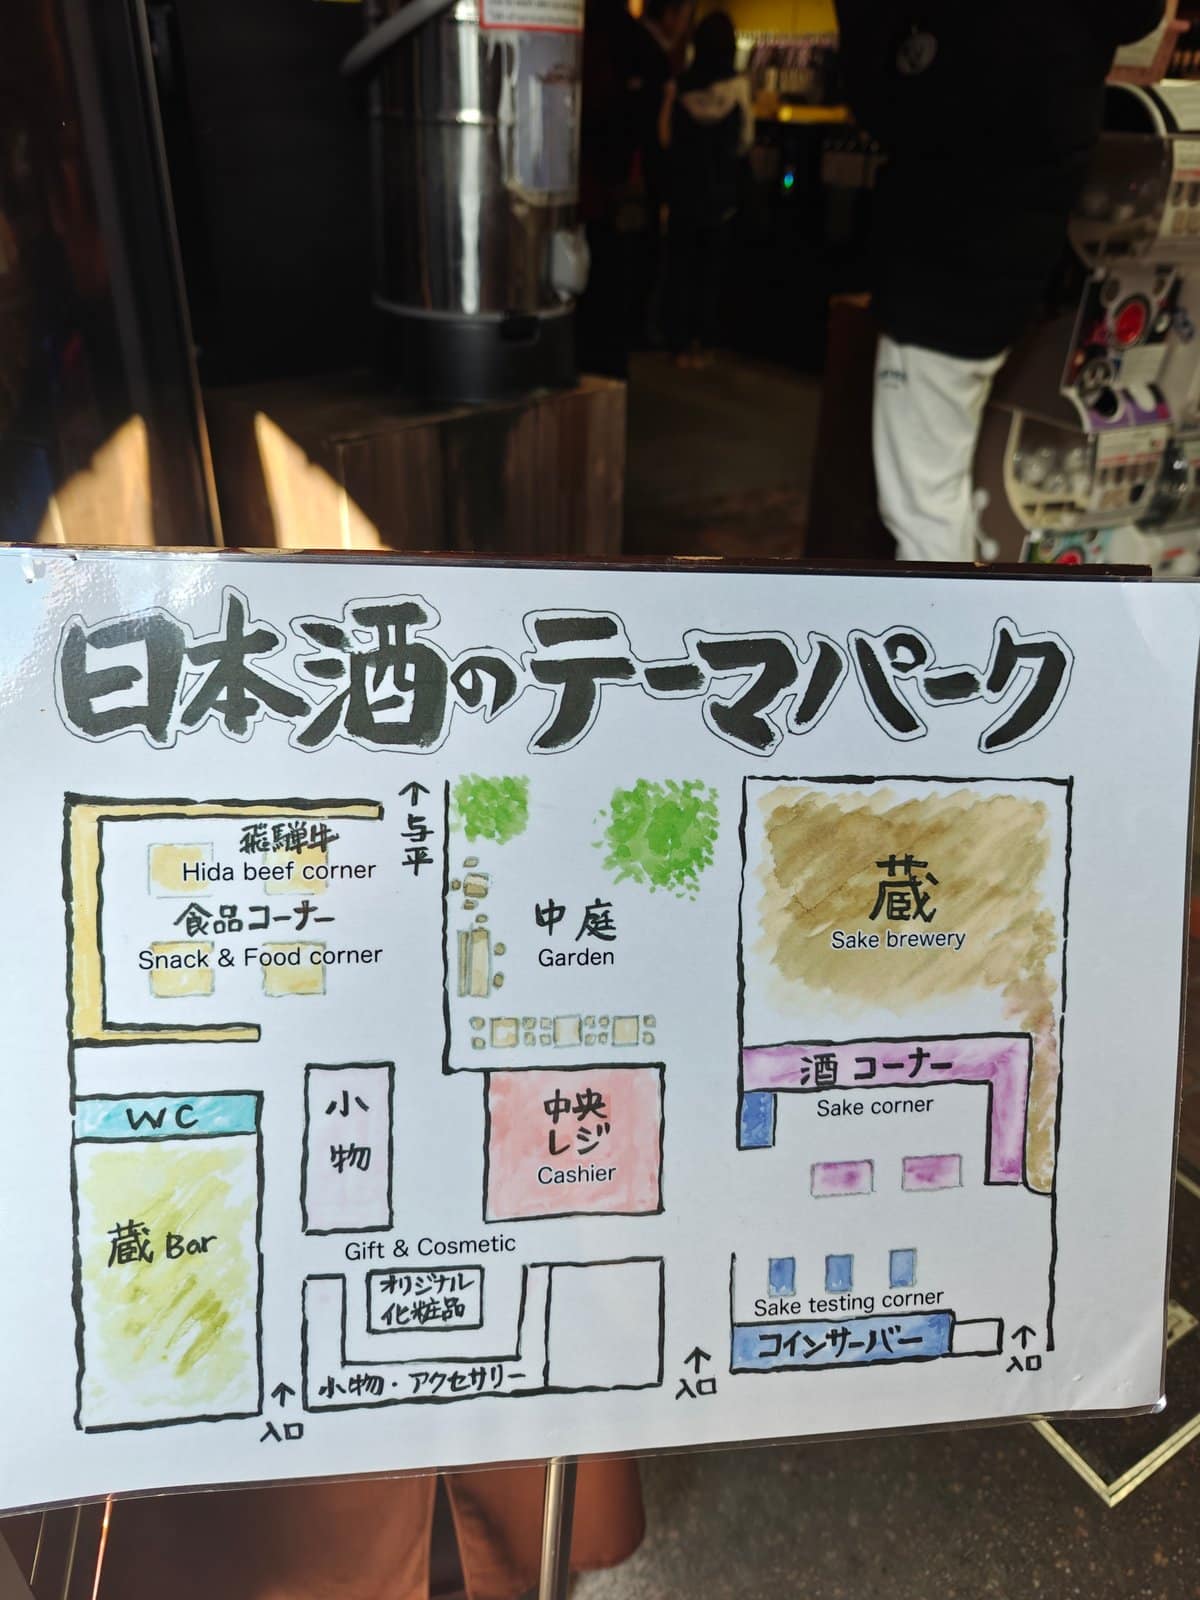 日本酒のテーマパーク
飛騨牛
Hida beef corner
食品コーナー
Snack & Food corner
↑
与平
中庭
Garden
蔵
Sake brewery
酒コーナー
Sake corner
WC
小物
中央
レジ
Cashier
蔵Bar
Gift & Cosmetic
オリジナル
化粧品
小物・アクセサリー
Sake testing corner
コインサーバー
↑
入口
↑
入口
↑
入口